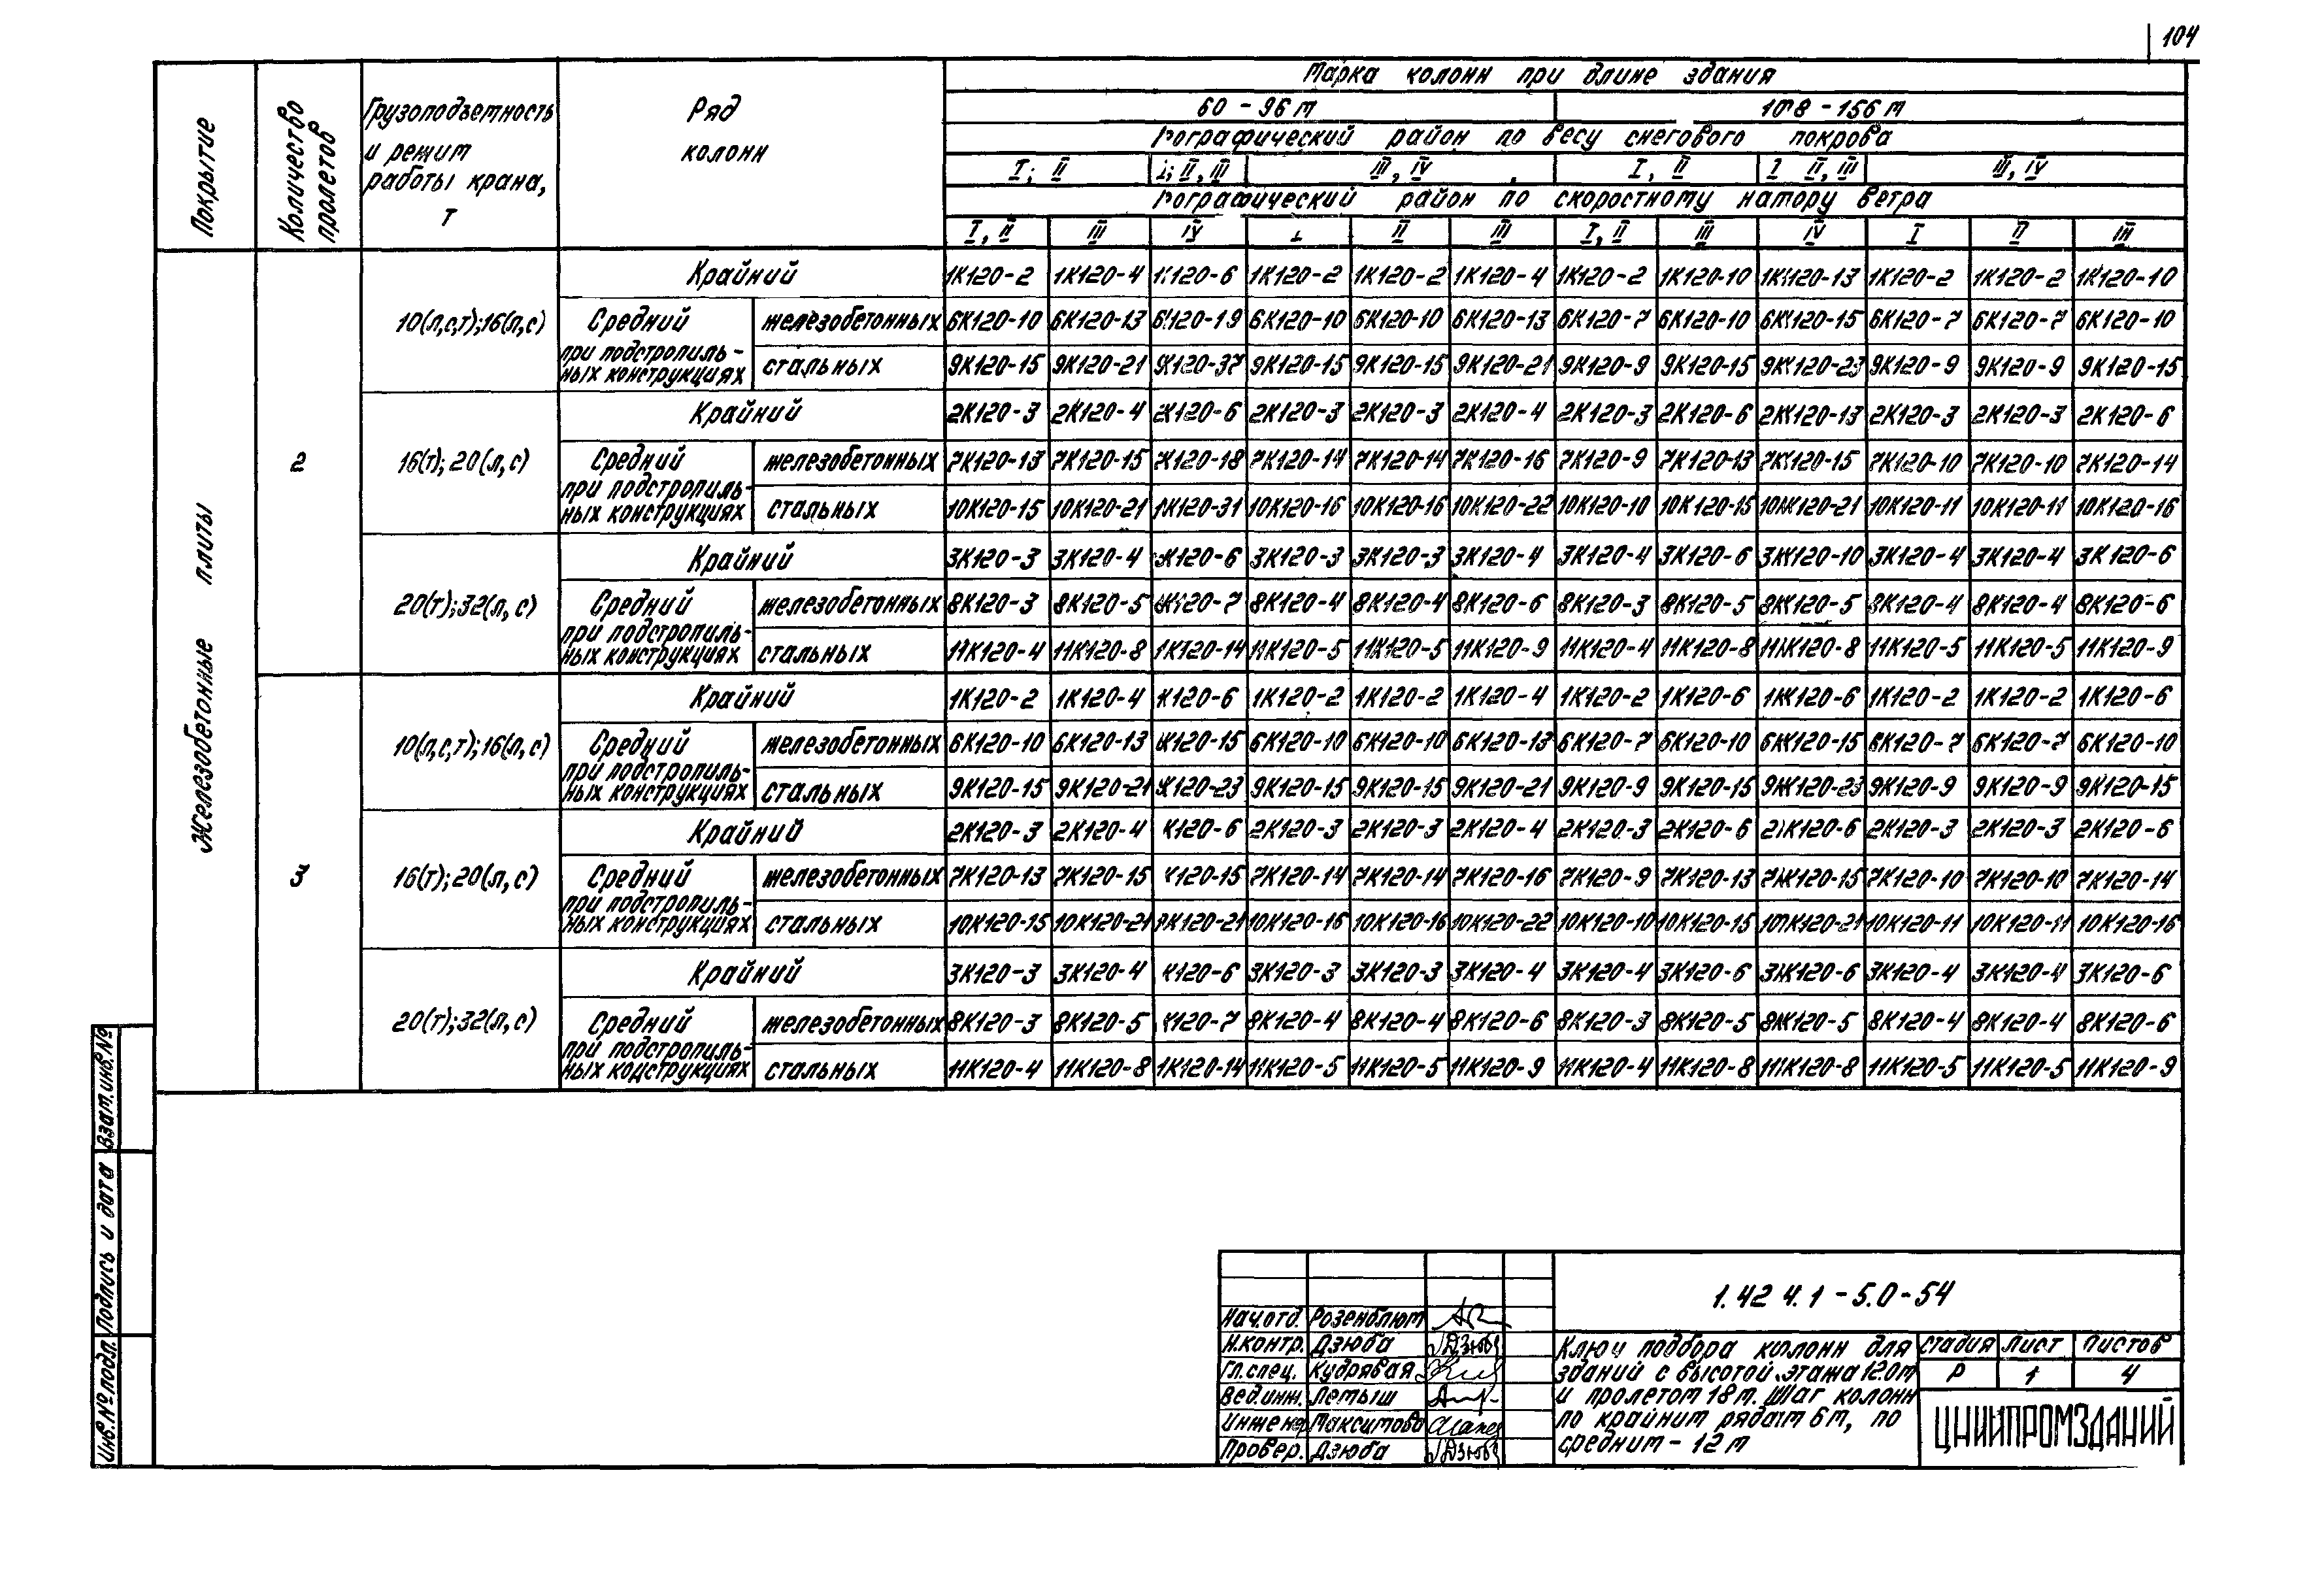 104
Покрытие
Количество пролетов
Грузоподъемность и режим работы крана, т
Ряд колонн
Марка колонн при длине здания
60 - 96 м 108 - 156 м
географический район по весу снегового покрова
I; II I; II, III III, IV I, II I II, III III, IV
географический район по скоростному напору ветра
I, II III IV I II III I, II III IV I II III
Железобетонные плиты
2
10(л,с,т);16(л,с)
Крайний 1К120-2 1К120-4 1К120-6 1К120-2 1К120-2 1К120-4 1К120-2 1К120-10 1К120-13 1К120-2 1К120-2 1К120-10
Средний при подстропильных конструкциях
железобетонных 6К120-10 6К120-13 6К120-19 6К120-10 6К120-10 6К120-13 6К120-7 6К120-10 6К120-15 6К120-7 6К120-7 6К120-10
стальных 9К120-15 9К120-21 9К120-37 9К120-15 9К120-15 9К120-21 9К120-9 9К120-15 9К120-23 9К120-9 9К120-9 9К120-15
16(т); 20(л,с)
Крайний 2К120-3 2К120-4 2К120-6 2К120-3 2К120-3 2К120-4 2К120-3 2К120-6 2К120-13 2К120-3 2К120-3 2К120-6
Средний при подстропильных конструкциях
железобетонных 7К120-13 7К120-15 7К120-18 7К120-14 7К120-14 7К120-16 7К120-9 7К120-13 7К120-15 7К120-10 7К120-10 7К120-14
стальных 10К120-15 10К120-21 1К120-31 10К120-16 10К120-16 10К120-22 10К120-10 10К120-15 10К120-21 10К120-11 10К120-11 10К120-16
20(т);32(л,с)
Крайний 3К120-3 3К120-4 3К120-6 3К120-3 3К120-3 3К120-4 3К120-4 3К120-6 3К120-10 3К120-4 3К120-4 3К120-6
Средний при подстропильных конструкциях
железобетонных 8К120-3 8К120-5 8К120-7 8К120-4 8К120-4 8К120-6 8К120-3 8К120-5 8К120-5 8К120-4 8К120-4 8К120-6
стальных 11К120-4 11К120-8 1К120-14 11К120-5 11К120-5 11К120-9 11К120-4 11К120-8 11К120-8 11К120-5 11К120-5 11К120-9
3
10(л,с,т);16(л,с)
Крайний 1К120-2 1К120-4 К120-6 1К120-2 1К120-2 1К120-4 1К120-2 1К120-6 1К120-6 1К120-2 1К120-2 1К120-6
Средний при подстропильных конструкциях
железобетонных 6К120-10 6К120-13 К120-15 6К120-10 6К120-10 6К120-13 6К120-7 6К120-10 6К120-15 6К120-7 6К120-7 6К120-10
стальных 9К120-15 9К120-21 К120-23 9К120-15 9К120-15 9К120-21 9К120-9 9К120-15 9К120-23 9К120-9 9К120-9 9К120-15
16(т); 20(л,с)
Крайний 2К120-3 2К120-4 К120-6 2К120-3 2К120-3 2К120-4 2К120-3 2К120-6 2К120-6 2К120-3 2К120-3 2К120-6
Средний при подстропильных конструкциях
железобетонных 7К120-13 7К120-15 К120-15 7К120-14 7К120-14 7К120-16 7К120-9 7К120-13 7К120-15 7К120-10 7К120-10 7К120-14
стальных 10К120-15 10К120-21 К120-21 10К120-16 10К120-16 10К120-22 10К120-10 10К120-15 10К120-21 10К120-11 10К120-11 10К120-16
20(т);32(л,с)
Крайний 3К120-3 3К120-4 К120-6 3К120-3 3К120-3 3К120-4 3К120-4 3К120-6 3К120-6 3К120-4 3К120-4 3К120-6
Средний при подстропильных конструкциях
железобетонных 8К120-3 8К120-5 К120-7 8К120-4 8К120-4 8К120-6 8К120-3 8К120-5 8К120-5 8К120-4 8К120-4 8К120-6
стальных 11К120-4 11К120-8 1К120-14 11К120-5 11К120-5 11К120-9 11К120-4 11К120-8 11К120-8 11К120-5 11К120-5 11К120-9
Инв.№ подл. Подпись и дата Взам.инв.№
Нач.отд. Розенблюм
Н.контр. Дзюба
Гл.спец. Кудрявая
Вед.инж. Летыш
Инженер Максимова
Провер. Дзюба
1.424.1-5.0-54
Ключ подбора колонн для
зданий с высотой этажа 12.0м
и пролетом 18м. Шаг колонн
по крайним рядам 6м, по
средним - 12м
Стадия Лист Листов
Р 1 4
ЦНИИПРОМЗДАНИЙ